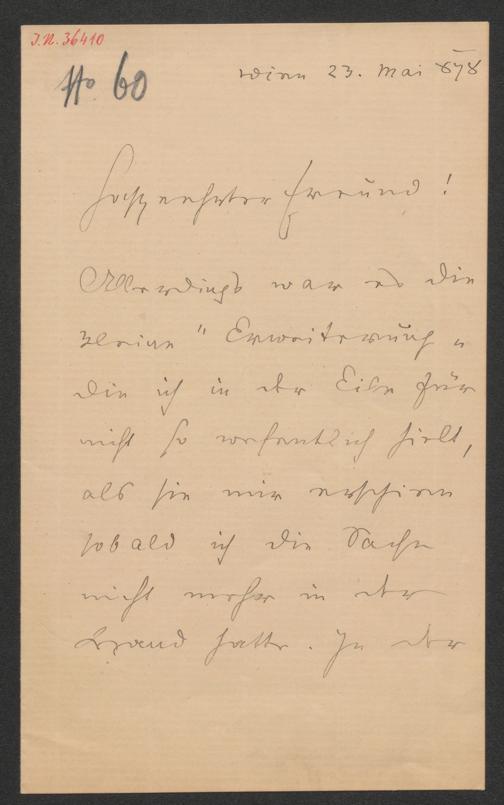 I.N. 36410
No 60
Wien 23. Mai 878
Hochgeehrter Freund!
Allerdings war es die
kleine "Erweiterung"
die ich in der Eile für
nicht so wesentlich hielt,
als sie mir erschien
sobald ich die Sache
nicht mehr in der
Hand hatte. In der